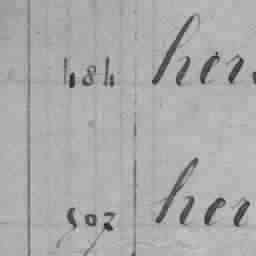 484 her
502 her